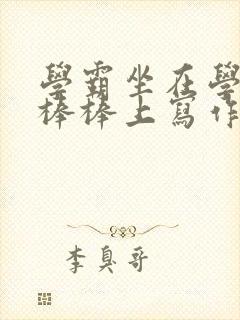 學霸坐在學
棒棒上寫作
李臭哥